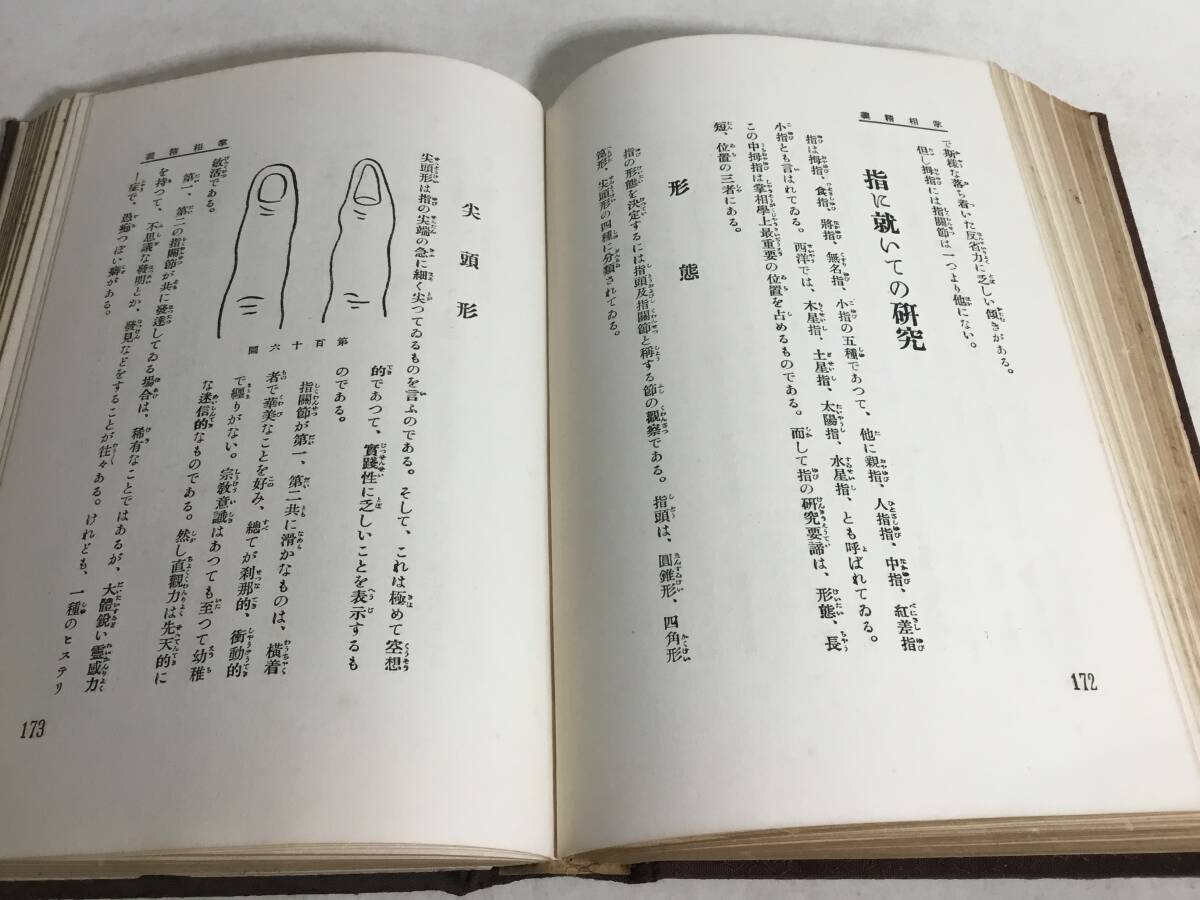 掌相精義
で斯樣な落ち着いた反省力に乏しい傾きがある。
但し拇指には指關節は一つより他にない。
指に就いての研究
指は拇指、食指、將指、無名指、小指の五種であつて、他に親指、人指指、中指、紅差指
小指とも言はれてゐる。西洋では、木星指、土星指、太陽指、水星指、とも呼ばれてゐる。
この中拇指は掌相學上最重要の位置を占めるものである。而して指の研究要諦は、形態、長
短、位置の三者にある。
形態
指の形態を決定するには指頭及指關節と稱する節の觀察である。指頭は、圓錐形、四角形
箆形、尖頭形の四種に分類されてゐる。
172
掌相精義
尖頭形
尖頭形は指の尖端の急に細く尖つてゐるものを言ふのである。そして、これは極めて空想
的であつて、實踐性に乏しいことを表示するも
のである。
指關節が第一、第二共に滑かなものは、橫着
者で華美なことを好み、總てが刹那的、衝動的
で纒りがない。宗敎意識はあつても至つて幼稚
な迷信的なものである。然し直觀力は先天的に
第百十六圖
敏活である。
第一、第二の指關節が共に發達してゐる場合は、稀有なことではあるが、大體銳い靈感力
を持つて、不思議な發明とか、發見などをすることが往々ある。けれども、一種のヒステリ
ー症で、過激つぽい癖がある。
173